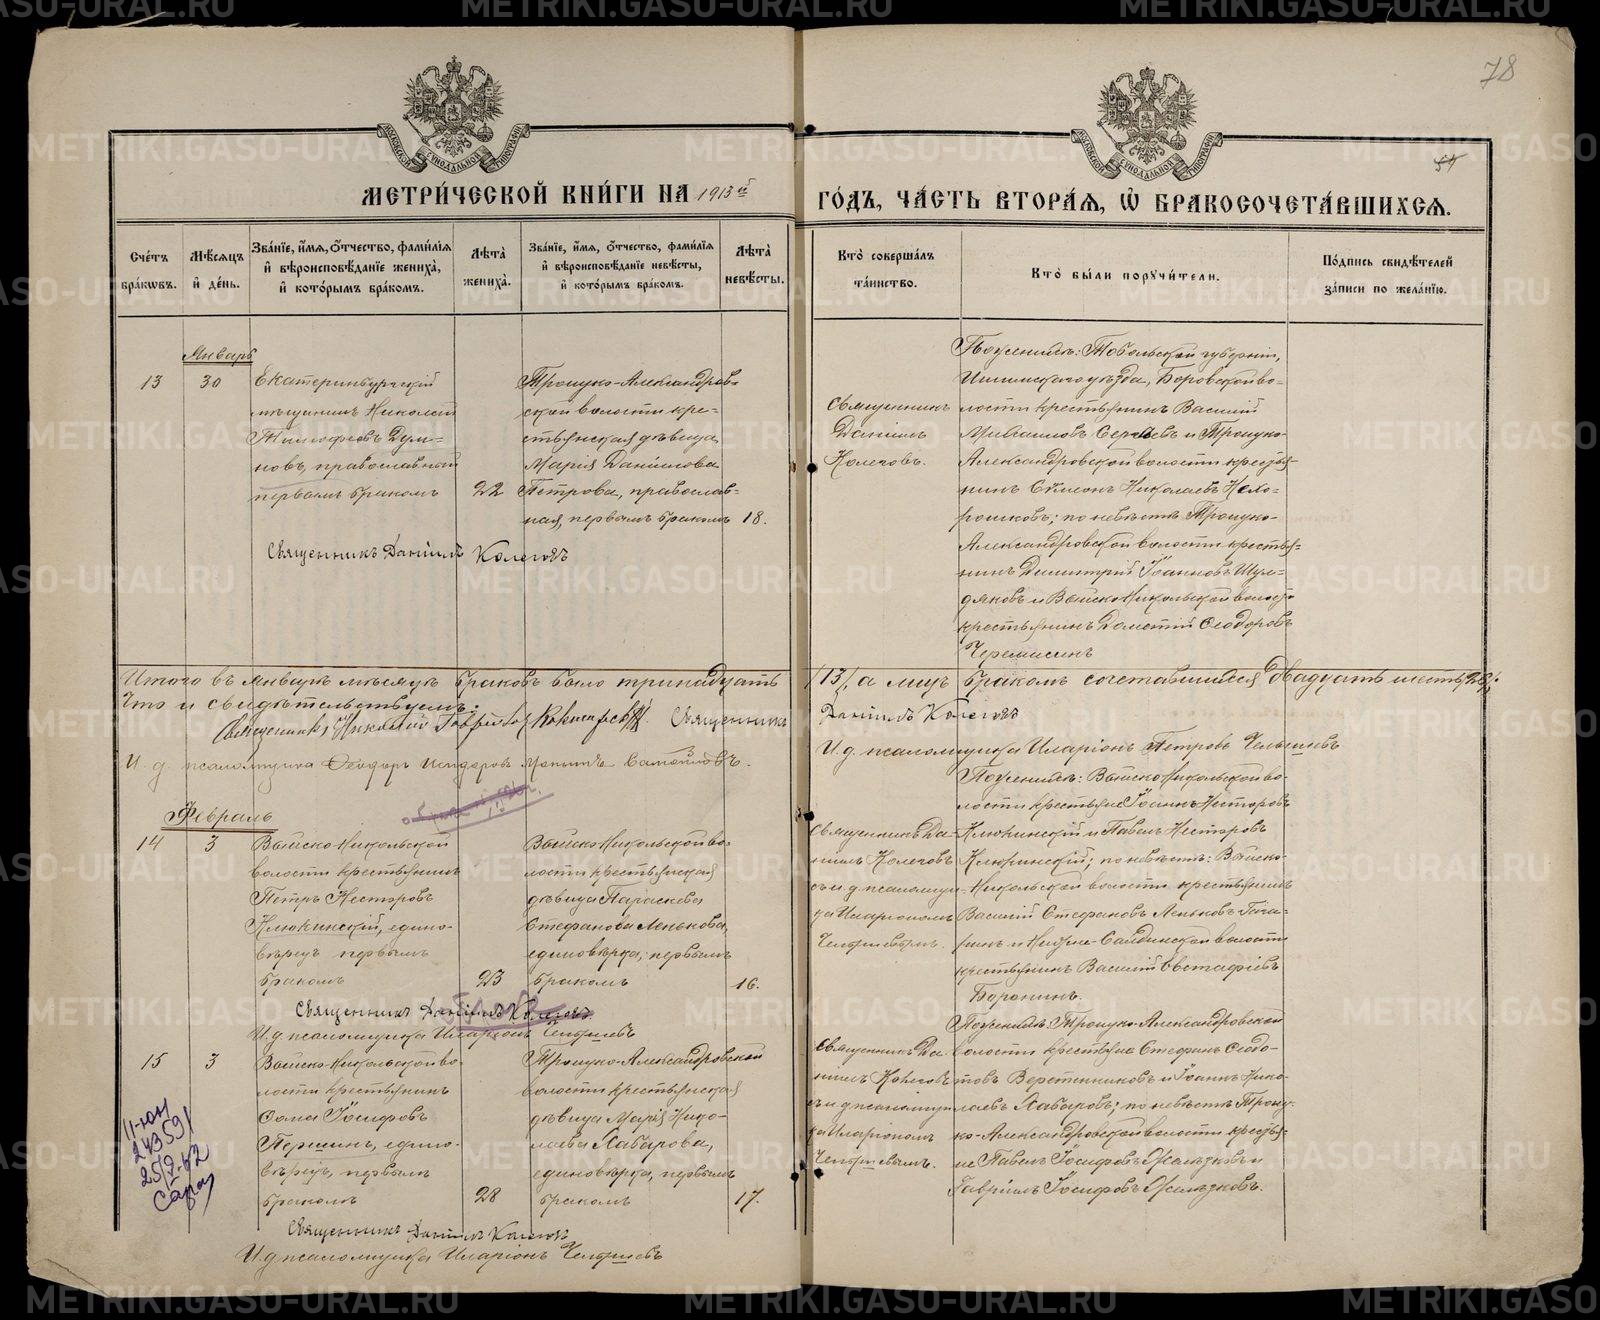 78
54
МЕТРИ́ЧЕСКОЙ КНИ́ГИ НА 1913й ГО́ДЪ, ЧА́СТЬ ВТОРА́Я, Ѿ БРАКОСОЧЕТА́ВШИХСЯ.
Сче́тъ бра́ковъ.
Мѣ́сяцъ и де́нь.
Зва́нїе, и́мя, о́тчество, фами́лїя и вѣроисповѣ́данїе жениха̀, и кото́рымъ бра́комъ.
Лѣ́та жениха̀.
Зва́нїе, и́мя, о́тчество, фами́лїя и вѣроисповѣ́данїе невѣ́сты, и кото́рымъ бра́комъ.
Лѣ́та невѣ́сты.
Кто̀ соверша́лъ та́инство.
Кто̀ бы́ли порꙋчи́тели.
По́дпись свидѣ́телей за́писи по жела́нїю.
Январь
13
30
Екатеринбургскій
мѣщанинъ Николай
Тимофѣевъ Дум-
новъ, православный
первымъ бракомъ
22
Троицко-Александров-
ской волости кре-
стьянская дѣвица
Марія Даніилова
Петрова, православ-
ная, первымъ бракомъ
18.
Священникъ
Даніилъ
Колеговъ.
Поженихѣ: Тобольской губерніи,
Ишимскаго уѣзда, Боровской во-
лости крестьянинъ Василій
Михаиловъ и Троицко-
Александровской волости кресть-
нинъ Симеонъ Николаевъ Нехо-
рошковъ; по невѣстѣ Троицко-
Александровской волости крестья-
нинъ Димитрій Іоанновъ Шул-
дяковъ и Байско-Никольской волости
крестьянинъ Дометій Ѳеодоровъ
Черемисинъ
Священникъ Даніилъ Колеговъ
Итого въ Январѣ мѣсяцѣ браковъ было тринадцать /13/, а лицъ бракомъ сочетавшихся Двадцать шесть /26/.
Что и свидѣтельствуемъ:
Священникъ Николай Гавриловъ. Священникъ Даніилъ Колеговъ
И. д. псаломщика Ѳеодоръ
И. д. псаломщика Иларіонъ Петровъ
Февраль
14
3
Байско-Никольской
волости крестьянинъ
Петръ Несторовъ
Клюкинскій, едино-
вѣрецъ первымъ
бракомъ
23
Байско-Никольской во-
лости крестьянская
дѣвица Параскева
Стефанова Ленькова,
единовѣрка, первымъ
бракомъ
16.
Священникъ Да-
ніилъ Колеговъ
съ и д псаломщи-
ка Иларіономъ
Поженихѣ: Байско Никольской во-
лости крестьяне Іоаннъ Несторовъ
Клюкинскій и Павелъ Несторовъ
Клюкинскій; по невѣстѣ: Байско-
Никольской волости крестьянинъ
Василій Стефановъ Леньковъ
и Нижне-Салдинской волости
крестьянинъ Василій Евстафіевъ
Боронинъ.
Священникъ Даніилъ Колеговъ.
И. д. псаломщика Иларіонъ
15
3
Байско-Никольской во-
лости крестьянинъ
Ѳома Іосифовъ
Першинъ, едино-
вѣрецъ, первымъ
бракомъ
28
Троицко-Александровской
волости крестьянская
дѣвица Марія Нико-
лаева Хабарова,
единовѣрка, первымъ
бракомъ
17.
Священникъ Да-
ніилъ Колеговъ
съ и д псаломщи-
ка Иларіономъ
Поженихѣ: Троицко-Александровской
волости крестьяне Стефанъ Ѳедо-
товъ Веретенниковъ и Іоаннъ Нико-
лаевъ Хабаровъ; по невѣстѣ Троиц-
ко-Александровской волости крестья-
не Павелъ Іосифовъ Желѣзковъ и
Гавріилъ Іосифовъ Желѣзковъ.
Священникъ Даніилъ Колеговъ
И. д. псаломщика Иларіонъ
METRIKI.GASO-URAL.RU